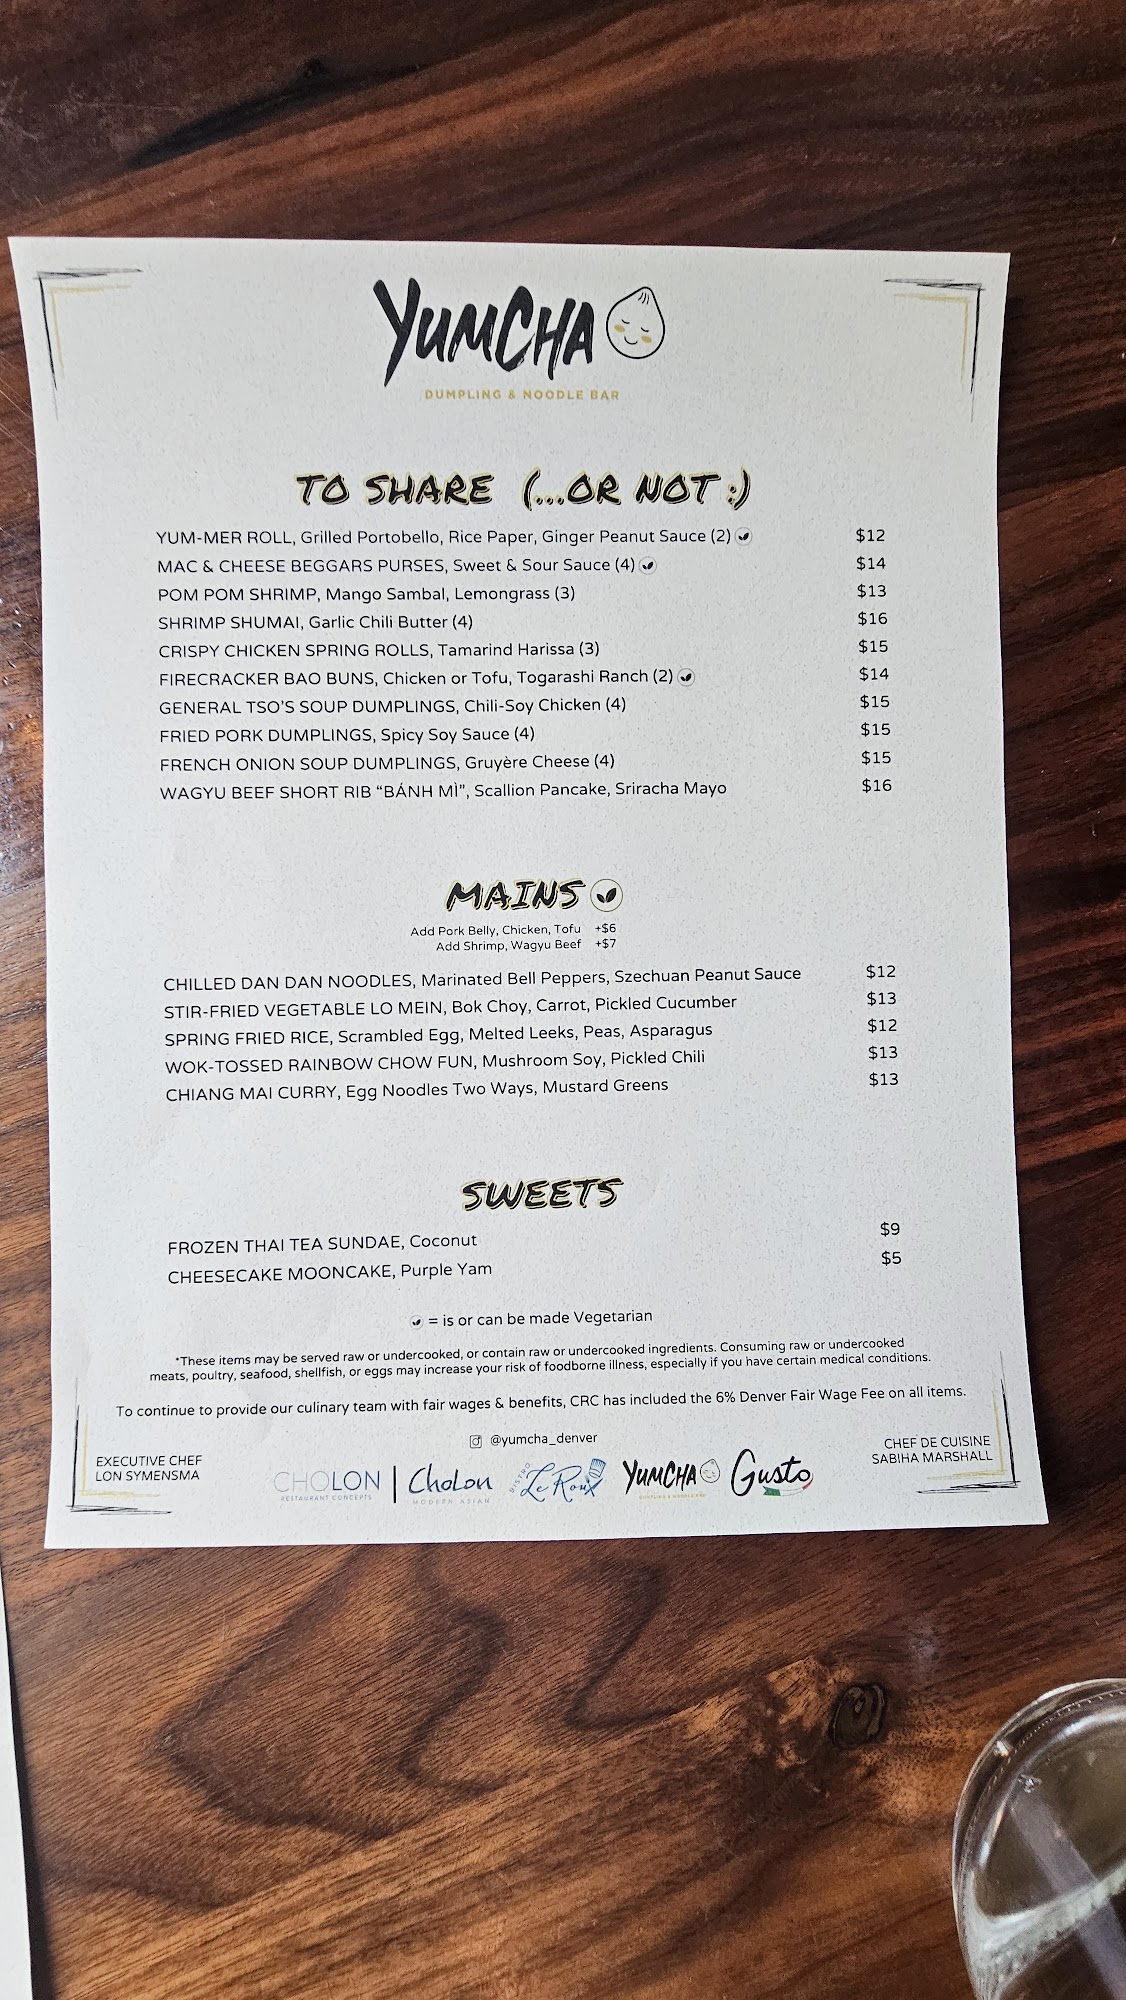 YUMCHA
DUMPLING & NOODLE BAR
TO SHARE (...OR NOT :)
YUM-MER ROLL, Grilled Portobello, Rice Paper, Ginger Peanut Sauce (2) $12
MAC & CHEESE BEGGARS PURSES, Sweet & Sour Sauce (4) $14
POM POM SHRIMP, Mango Sambal, Lemongrass (3) $13
SHRIMP SHUMAI, Garlic Chili Butter (4) $16
CRISPY CHICKEN SPRING ROLLS, Tamarind Harissa (3) $15
FIRECRACKER BAO BUNS, Chicken or Tofu, Togarashi Ranch (2) $14
GENERAL TSO'S SOUP DUMPLINGS, Chili-Soy Chicken (4) $15
FRIED PORK DUMPLINGS, Spicy Soy Sauce (4) $15
FRENCH ONION SOUP DUMPLINGS, Gruyère Cheese (4) $15
WAGYU BEEF SHORT RIB “BÁNH MÌ”, Scallion Pancake, Sriracha Mayo $16
MAINS
Add Pork Belly, Chicken, Tofu +$6
Add Shrimp, Wagyu Beef +$7
CHILLED DAN DAN NOODLES, Marinated Bell Peppers, Szechuan Peanut Sauce $12
STIR-FRIED VEGETABLE LO MEIN, Bok Choy, Carrot, Pickled Cucumber $13
SPRING FRIED RICE, Scrambled Egg, Melted Leeks, Peas, Asparagus $12
WOK-TOSSED RAINBOW CHOW FUN, Mushroom Soy, Pickled Chili $13
CHIANG MAI CURRY, Egg Noodles Two Ways, Mustard Greens $13
SWEETS
FROZEN THAI TEA SUNDAE, Coconut $9
CHEESECAKE MOONCAKE, Purple Yam $5
= is or can be made Vegetarian
*These items may be served raw or undercooked, or contain raw or undercooked ingredients. Consuming raw or undercooked
meats, poultry, seafood, shellfish, or eggs may increase your risk of foodborne illness, especially if you have certain medical conditions.
To continue to provide our culinary team with fair wages & benefits, CRC has included the 6% Denver Fair Wage Fee on all items.
@yumcha_denver
EXECUTIVE CHEF
LON SYMENSMA
CHEF DE CUISINE
SABIHA MARSHALL
CHOLON
RESTAURANT CONCEPTS
CHOLON
MODERN ASIAN
BISTRO
Le Roux
YUMCHA
DUMPLING & NOODLE BAR
Gusto